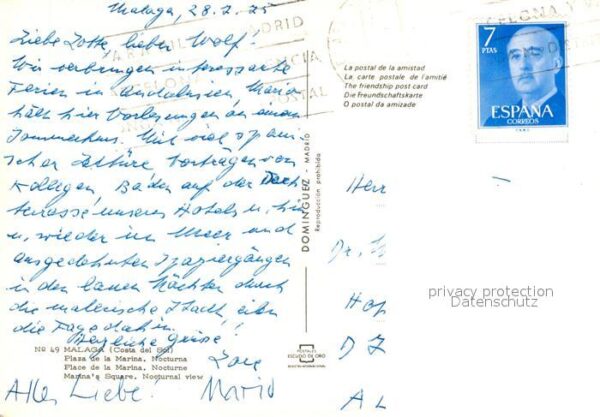 Malaga, 28.7.75
Liebe Lotte, lieber Wolf!
Wir verbringen interessante
Ferien in Andalusien. Mario
hält hier Vorlesungen an einem
Sommerkurs. Mit viel spani-
scher Lektüre, Vorträgen von
Kollegen, Baden auf der Dach
terrasse unseres Hotels u. hin
u. wieder im Meer und
ausgedehnten Spaziergängen
in den lauen Nächten durch
die malerische Stadt, eilen
die Tage dahin.
Herzliche Grüsse!
Alles Liebe! Mario
No 49 MALAGA (Costa del Sol)
Plaza de la Marina, Nocturna
Place de la Marine, Nocturne
Marina's Square, Nocturnal view
DOMINGUEZ - MADRID
Reproducción prohibida
POSTALES
ESCUDO DE ORO
La postal de la amistad
La carte postale de l'amitié
The friendship post card
Die Freundschaftskarte
O postal da amizade
7
PTAS
ESPAÑA
CORREOS
Herr
Dr.
privacy protection
Datenschutz